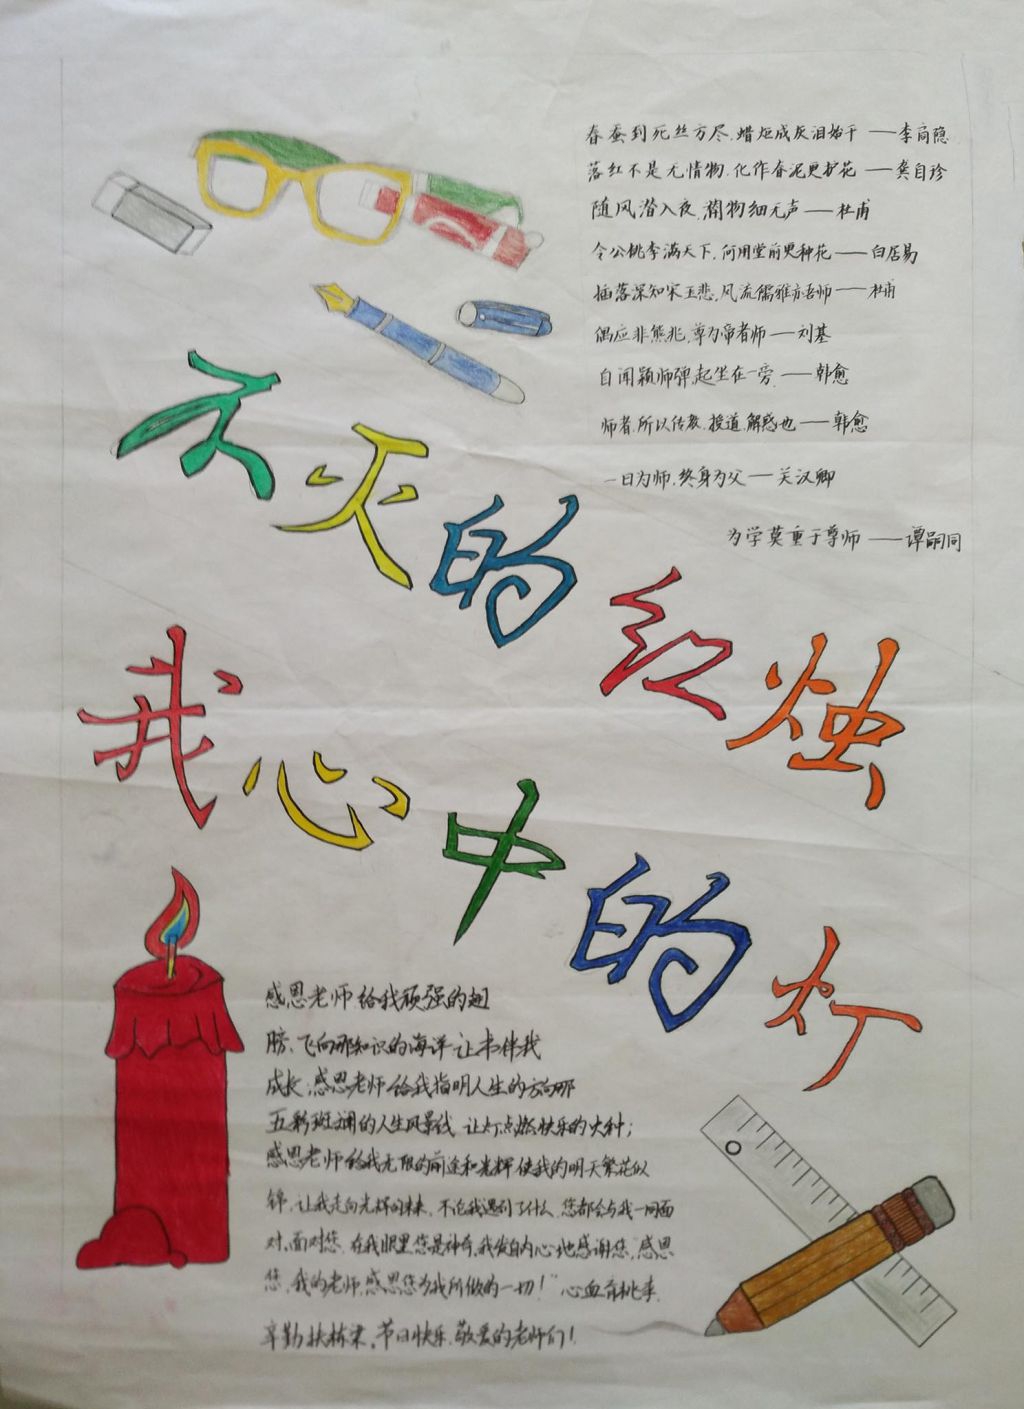 春蚕到死丝方尽,蜡炬成灰泪始干 ——李商隐
落红不是无情物,化作春泥更护花 ——龚自珍
随风潜入夜,润物细无声——杜甫
令公桃李满天下,何用堂前更种花——白居易
摇落深知宋玉悲,风流儒雅亦吾师——杜甫
偶应非熊兆,尊为帝者师——刘基
自闻颖师弹,起坐在一旁——韩愈
师者,所以传教,授道,解惑也——韩愈
一日为师,终身为父——关汉卿
为学莫重于尊师——谭嗣同
不灭的红烛
我心中的灯
感恩老师给我顽强的翅
膀、飞向那知识的海洋让书伴我
成长;感恩老师给我指明人生的方向那
五彩斑斓的人生风景线,让灯点燃快乐的火种;
感恩老师给我无限的前途和光辉使我的明天繁花似
锦,让我走向光辉的未来,不论我遇到了什么,您都会与我一同面
对,面对您,在我眼里您是神奇,我发自内心地感谢您,感恩
您,我的老师,感恩您为我所做的一切!" 心血育桃李
辛勤扶栋梁,节日快乐,敬爱的老师们!